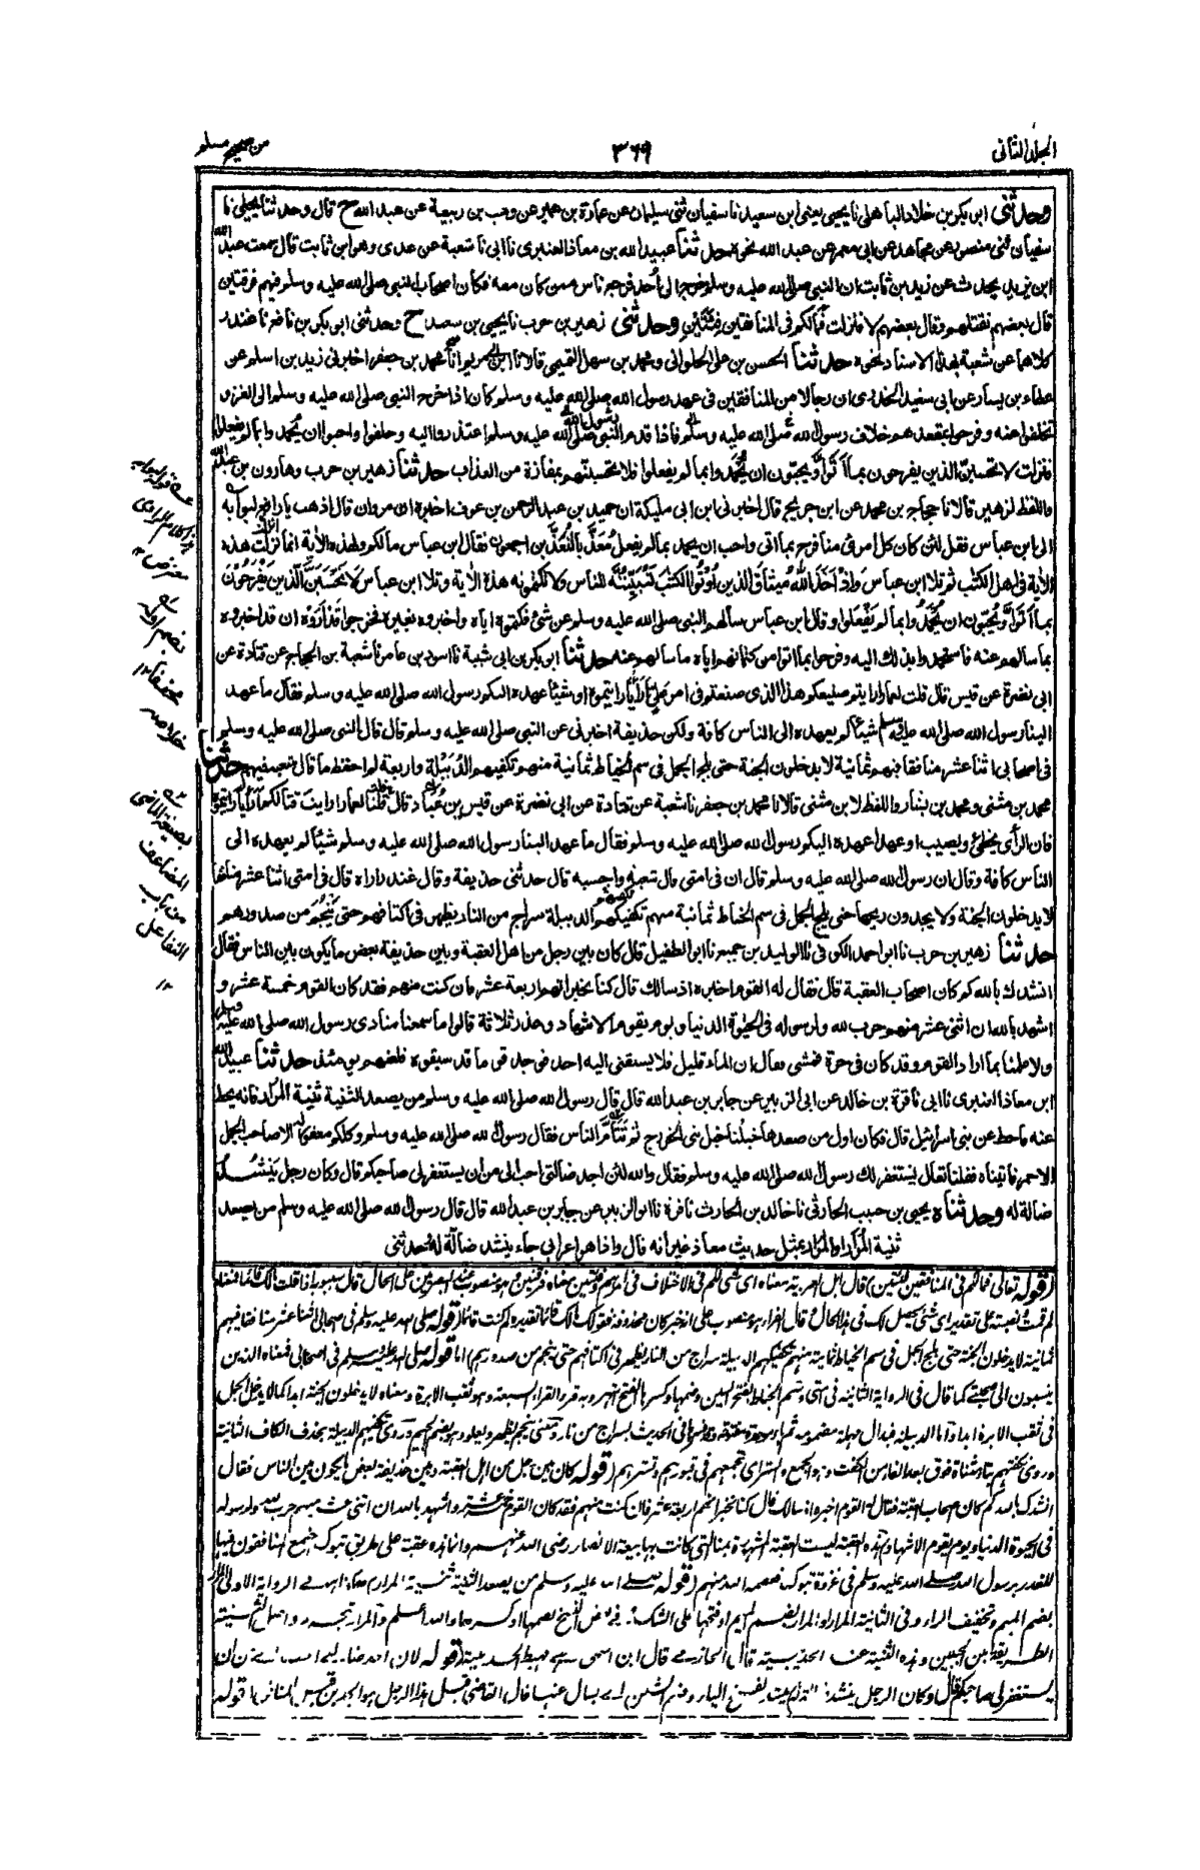 الجلد الثانى
٣٦٩
من صحيح مسلم
وحدثنى ابو بكر بن خلاد الباهلى نا يحيى يعنى ابن سعيد نا سفيان ثنى سليمان عن عمارة بن عمير عن وهب بن ربيعة عن عبد الله ح قال وحدثنا يحيى نا
سفيان ثنى منصور عن مجاهد عن ابى معمر عن عبد الله نحوه حدثنا عبيد الله بن معاذ العنبرى نا ابى نا شعبة عن عدى وهو ابن ثابت قال سمعت عبد الله
ابن يزيد يحدث عن زيد بن ثابت ان النبى صلى الله عليه وسلم خرج الى أحد فرجع ناس ممن كان معه فكان اصحاب النبى صلى الله عليه وسلم فيهم فرقتين
قال بعضهم نقتلهم وقال بعضهم لا فنزلت فما لكم فى المنافقين فئتين وحدثنى زهير بن حرب نا يحيى بن سعيد ح وحدثنى ابو بكر بن نافع نا غندر
كلاهما عن شعبة بهذا الاسناد نحوه حدثنا الحسن بن على الحلوانى ومحمد بن سهل التميمى قالا نا ابن ابى مريم انا محمد بن جعفر اخبرنى زيد بن اسلم عن
عطاء بن يسار عن ابى سعيد الخدرى ان رجالا من المنافقين فى عهد رسول الله صلى الله عليه وسلم كان اذا خرج النبى صلى الله عليه وسلم الى الغزو
تخلفوا عنه وفرحوا بمقعدهم خلاف رسول الله صلى الله عليه وسلم فاذا قدم النبى صلى الله عليه وسلم اعتذروا اليه وحلفوا واحبوا ان يحمدوا بما لم يفعلوا
فنزلت لا تحسبن الذين يفرحون بما أتوا ويحبون ان يحمدوا بما لم يفعلوا فلا تحسبنهم بمفازة من العذاب حدثنا زهير بن حرب وهارون بن عبد الله
واللفظ لزهير قالا نا حجاج بن محمد عن ابن جريج قال اخبرنى ابن ابى مليكة ان حميد بن عبد الرحمن بن عوف اخبره ان مروان قال اذهب يا رافع لبوابه
الى ابن عباس فقل لئن كان كل امرئ منا فرح بما اتى واحب ان يحمد بما لم يفعل معذبا لنعذبن اجمعون فقال ابن عباس ما لكم ولهذه الأية انما نزلت هذه
الأية فى اهل الكتب ثم تلا ابن عباس وإذ أخذ الله ميثاق الذين أوتوا الكتب لتبيننه للناس ولا تكتمونه هذه الأية وتلا ابن عباس لا تحسبن الذين يفرحون
بما أتوا ويحبون ان يحمدوا بما لم يفعلوا وقال ابن عباس سألهم النبى صلى الله عليه وسلم عن شئ فكتموه اياه واخبروه بغيره فخرجوا قد أروه ان قد اخبروه
بما سألهم عنه فاستحمدوا بذلك اليه وفرحوا بما اتوا من كتمانهم اياه ما سألهم عنه حدثنا ابو بكر بن ابى شيبة نا اسود بن عامر نا شعبة بن الحجاج عن قتادة عن
ابى نضرة عن قيس قال قلت لعمار ارايتم صنيعكم هذا الذى صنعتم فى امر على أرأيا رايتموه او شيئا عهده اليكم رسول الله صلى الله عليه وسلم فقال ما عهد
الينا رسول الله صلى الله عليه وسلم شيئا لم يعهده الى الناس كافة ولكن حذيفة اخبرنى عن النبى صلى الله عليه وسلم قال قال النبى صلى الله عليه وسلم
فى اصحابى اثنا عشر منافقا فيهم ثمانية لا يدخلون الجنة حتى يلج الجمل فى سم الخياط ثمانية منهم تكفيكهم الدبيلة واربعة لم احفظ ما قال شعبة فيهم حدثنا
محمد بن مثنى ومحمد بن بشار واللفظ لابن مثنى قالا نا محمد بن جعفر نا شعبة عن قتادة عن ابى نضرة عن قيس بن عباد قال قلنا لعمار ارايت قتالكم أرأيا رايتموه
فان الرأى يخطئ ويصيب او عهدا عهده اليكم رسول الله صلى الله عليه وسلم فقال ما عهد الينا رسول الله صلى الله عليه وسلم شيئا لم يعهده الى
الناس كافة وقال ان رسول الله صلى الله عليه وسلم قال ان فى امتى قال شعبة واحسبه قال حدثنى حذيفة وقال غندر اراه قال فى امتى اثنا عشر منافقا
لا يدخلون الجنة ولا يجدون ريحها حتى يلج الجمل فى سم الخياط ثمانية منهم تكفيكهم الدبيلة سراج من النار يظهر فى اكتافهم حتى ينجم من صدورهم
حدثنا زهير بن حرب نا ابو احمد الكوفى نا الوليد بن جميع نا ابو الطفيل قال كان بين رجل من اهل العقبة وبين حذيفة بعض ما يكون بين الناس فقال
انشدك بالله كم كان اصحاب العقبة قال فقال له القوم اخبره اذ سالك قال كنا نخبر انهم اربعة عشر فان كنت منهم فقد كان القوم خمسة عشر و
اشهد بالله ان اثنى عشر منهم حرب لله ولرسوله فى الحيوة الدنيا ويوم يقوم الاشهاد وعذر ثلاثة قالوا ما سمعنا منادى رسول الله صلى الله عليه وسلم
ولا علمنا بما اراد القوم وقد كان فى حرة فمشى فقال ان الماء قليل فلا يسبقنى اليه احد فوجد قوما قد سبقوه فلعنهم يومئذ حدثنا عبيد الله
ابن معاذ العنبرى نا ابى نا قرة بن خالد عن ابى الزبير عن جابر بن عبد الله قال قال رسول الله صلى الله عليه وسلم من يصعد الثنية ثنية المرار فانه يحط
عنه ما حط عن بنى اسرائيل قال فكان اول من صعدها خيلنا خيل بنى الخزرج ثم تتام الناس فقال رسول الله صلى الله عليه وسلم وكلكم مغفور له الا صاحب الجمل
الاحمر فاتيناه فقلنا تعال يستغفر لك رسول الله صلى الله عليه وسلم فقال والله لئن اجد ضالتى احب الى من ان يستغفر لى صاحبكم قال وكان رجل ينشد
ضالة له وحدثناه يحيى بن حبيب الحارثى نا خالد بن الحارث نا قرة نا ابو الزبير عن جابر بن عبد الله قال قال رسول الله صلى الله عليه وسلم من يصعد
ثنية المرار او المرار بمثل حديث معاذ غير انه قال واذا هو اعرابى جاء ينشد ضالة له حدثنى
(قوله تعالى فما لكم فى المنافقين فئتين) قال اهل العربية معناه اى شئ لكم فى الاختلاف فى امرهم وفئتين معناه فرقتين وهو منصوب عند البصريين على الحال قال سيبويه اذا قلت ما لك قائما فمعناه
لم قمت ونصبته على تقدير اى شئ يحصل لك فى هذا الحال وقال الفراء هو منصوب على انه خبر كان محذوفة فقولك ما لك قائما تقديره لم كنت قائما (قوله صلى الله عليه وسلم فى اصحابى اثنا عشر منافقا فيهم
ثمانية لا يدخلون الجنة حتى يلج الجمل فى سم الخياط ثمانية منهم تكفيكهم الدبيلة سراج من النار يظهر فى اكتافهم حتى ينجم من صدورهم) اما قوله صلى الله عليه وسلم فى اصحابى فمعناه الذين
ينسبون الى صحبتى كما قال فى الرواية الثانية فى امتى وسم الخياط بفتح السين وضمها وكسرها الفتح اشهر وبه قرأ القراء السبعة وهو ثقب الابرة ومعناه لا يدخلون الجنة ابدا كما لا يدخل الجمل
فى ثقب الابرة ابدا واما الدبيلة فبدال مهملة مضمومة ثم باء موحدة مفتوحة وقد فسرها فى الحديث بسراج من نار ومعنى ينجم يظهر ويعلو وهو بضم الجيم وروى تكفيهم الدبيلة بحذف الكاف الثانية
وروى تكفتهم بتاء مثناة فوق بعد الفاء من الكفت وهو الجمع والستر اى تجمعهم فى قبورهم وتسترهم (قوله كان بين رجل من اهل العقبة وبين حذيفة بعض ما يكون بين الناس فقال
انشدك بالله كم كان اصحاب العقبة فقال له القوم اخبره اذ سالك قال كنا نخبر انهم اربعة عشر فان كنت منهم فقد كان القوم خمسة عشر واشهد بالله ان اثنى عشر منهم حرب لله ولرسوله
فى الحيوة الدنيا ويوم يقوم الاشهاد) وهذه العقبة ليست العقبة المشهورة بمنا التى كانت بها بيعة الانصار رضى الله عنهم وانما هذه عقبة على طريق تبوك اجتمع المنافقون فيها
للغدر برسول الله صلى الله عليه وسلم فى غزوة تبوك فعصمه الله منهم (قوله صلى الله عليه وسلم من يصعد الثنية ثنية المرار) هكذا هو فى الرواية الاولى المرار
بضم الميم وتخفيف الراء وفى الثانية المرار او المرار بضم الميم او فتحها على الشك وفى بعض النسخ بضمها او كسرها والله اعلم والمرار شجر مر واصل الثنية
الطريق بين الجبلين وهذه الثنية عند الحديبية قال الحازمى قال ابن اسحق هى مهبط الحديبية (قوله لان اجد ضالتى احب الى من ان
يستغفر لى صاحبكم قال وكان الرجل ينشد ضالة له) ينشد بفتح الياء وضم الشين اى يسال عنها قال القاضى قيل هذا الرجل هو الجد بن قيس المنافق (قوله
بضم اوله
مخففا ١٢
خلاصه
بصيغة الماضى
المضاعف
من باب
التفاعل
١٢